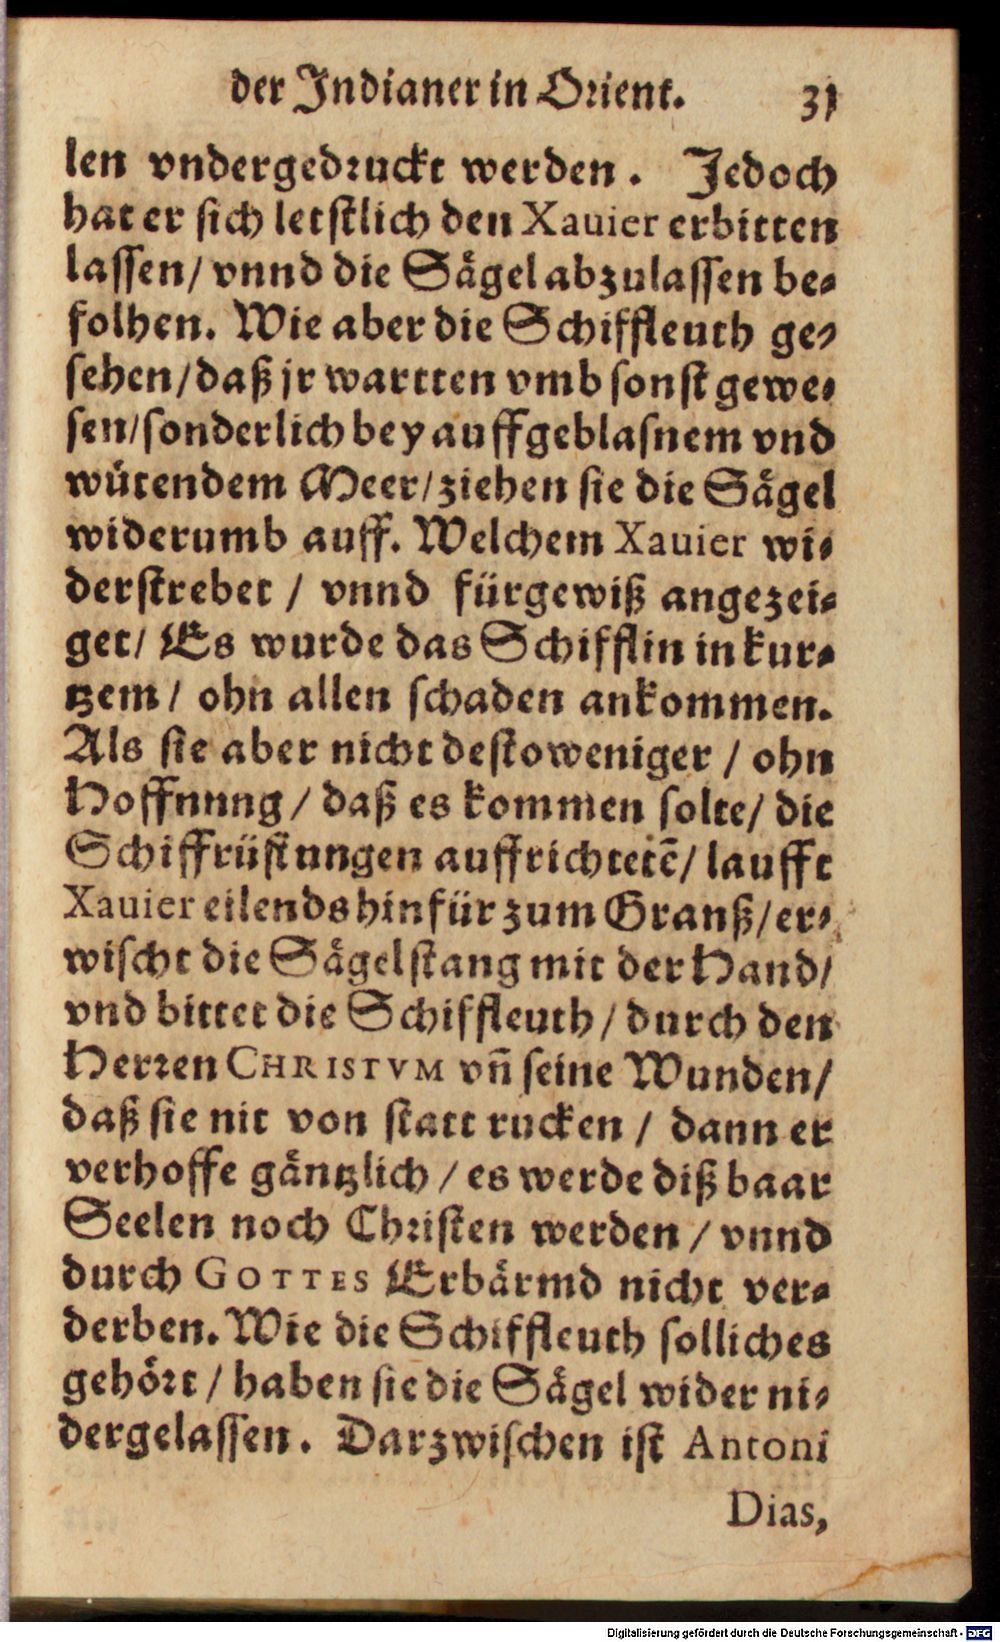 der Indianer in Orient. 31
len vndergedruckt werden. Jedoch
hat er sich letstlich den Xauier erbitten
lassen/ vnnd die Sågel abzulassen be-
folhen. Wie aber die Schiffleuth ge-
sehen/ daß jr wartten vmb sonst gewe-
sen/ sonderlich bey auffgeblasnem vnd
wütendem Meer/ ziehen sie die Sågel
widerumb auff. Welchem Xauier wi-
derstrebet / vnnd fürgewiß angezei-
get/ Es wurde das Schifflin in kur-
tzem / ohn allen schaden ankommen.
Als sie aber nicht destoweniger / ohn
Hoffnung / daß es kommen solte/ die
Schiffrüstungen auffrichtetē/ laufft
Xauier eilends hinfür zum Granß/ er-
wischt die Sågelstang mit der Hand/
vnd bittet die Schiffleuth / durch den
Herren CHRISTVM vn̄ seine Wunden/
daß sie nit von statt rucken / dann er
verhoffe gåntzlich / es werde diß baar
Seelen noch Christen werden / vnnd
durch GOTTES Erbårmd nicht ver-
derben. Wie die Schiffleuth solliches
gehört / haben sie die Sågel wider ni-
dergelassen. Darzwischen ist Antoni
Dias,
Digitalisierung gefördert durch die Deutsche Forschungsgemeinschaft - DFG